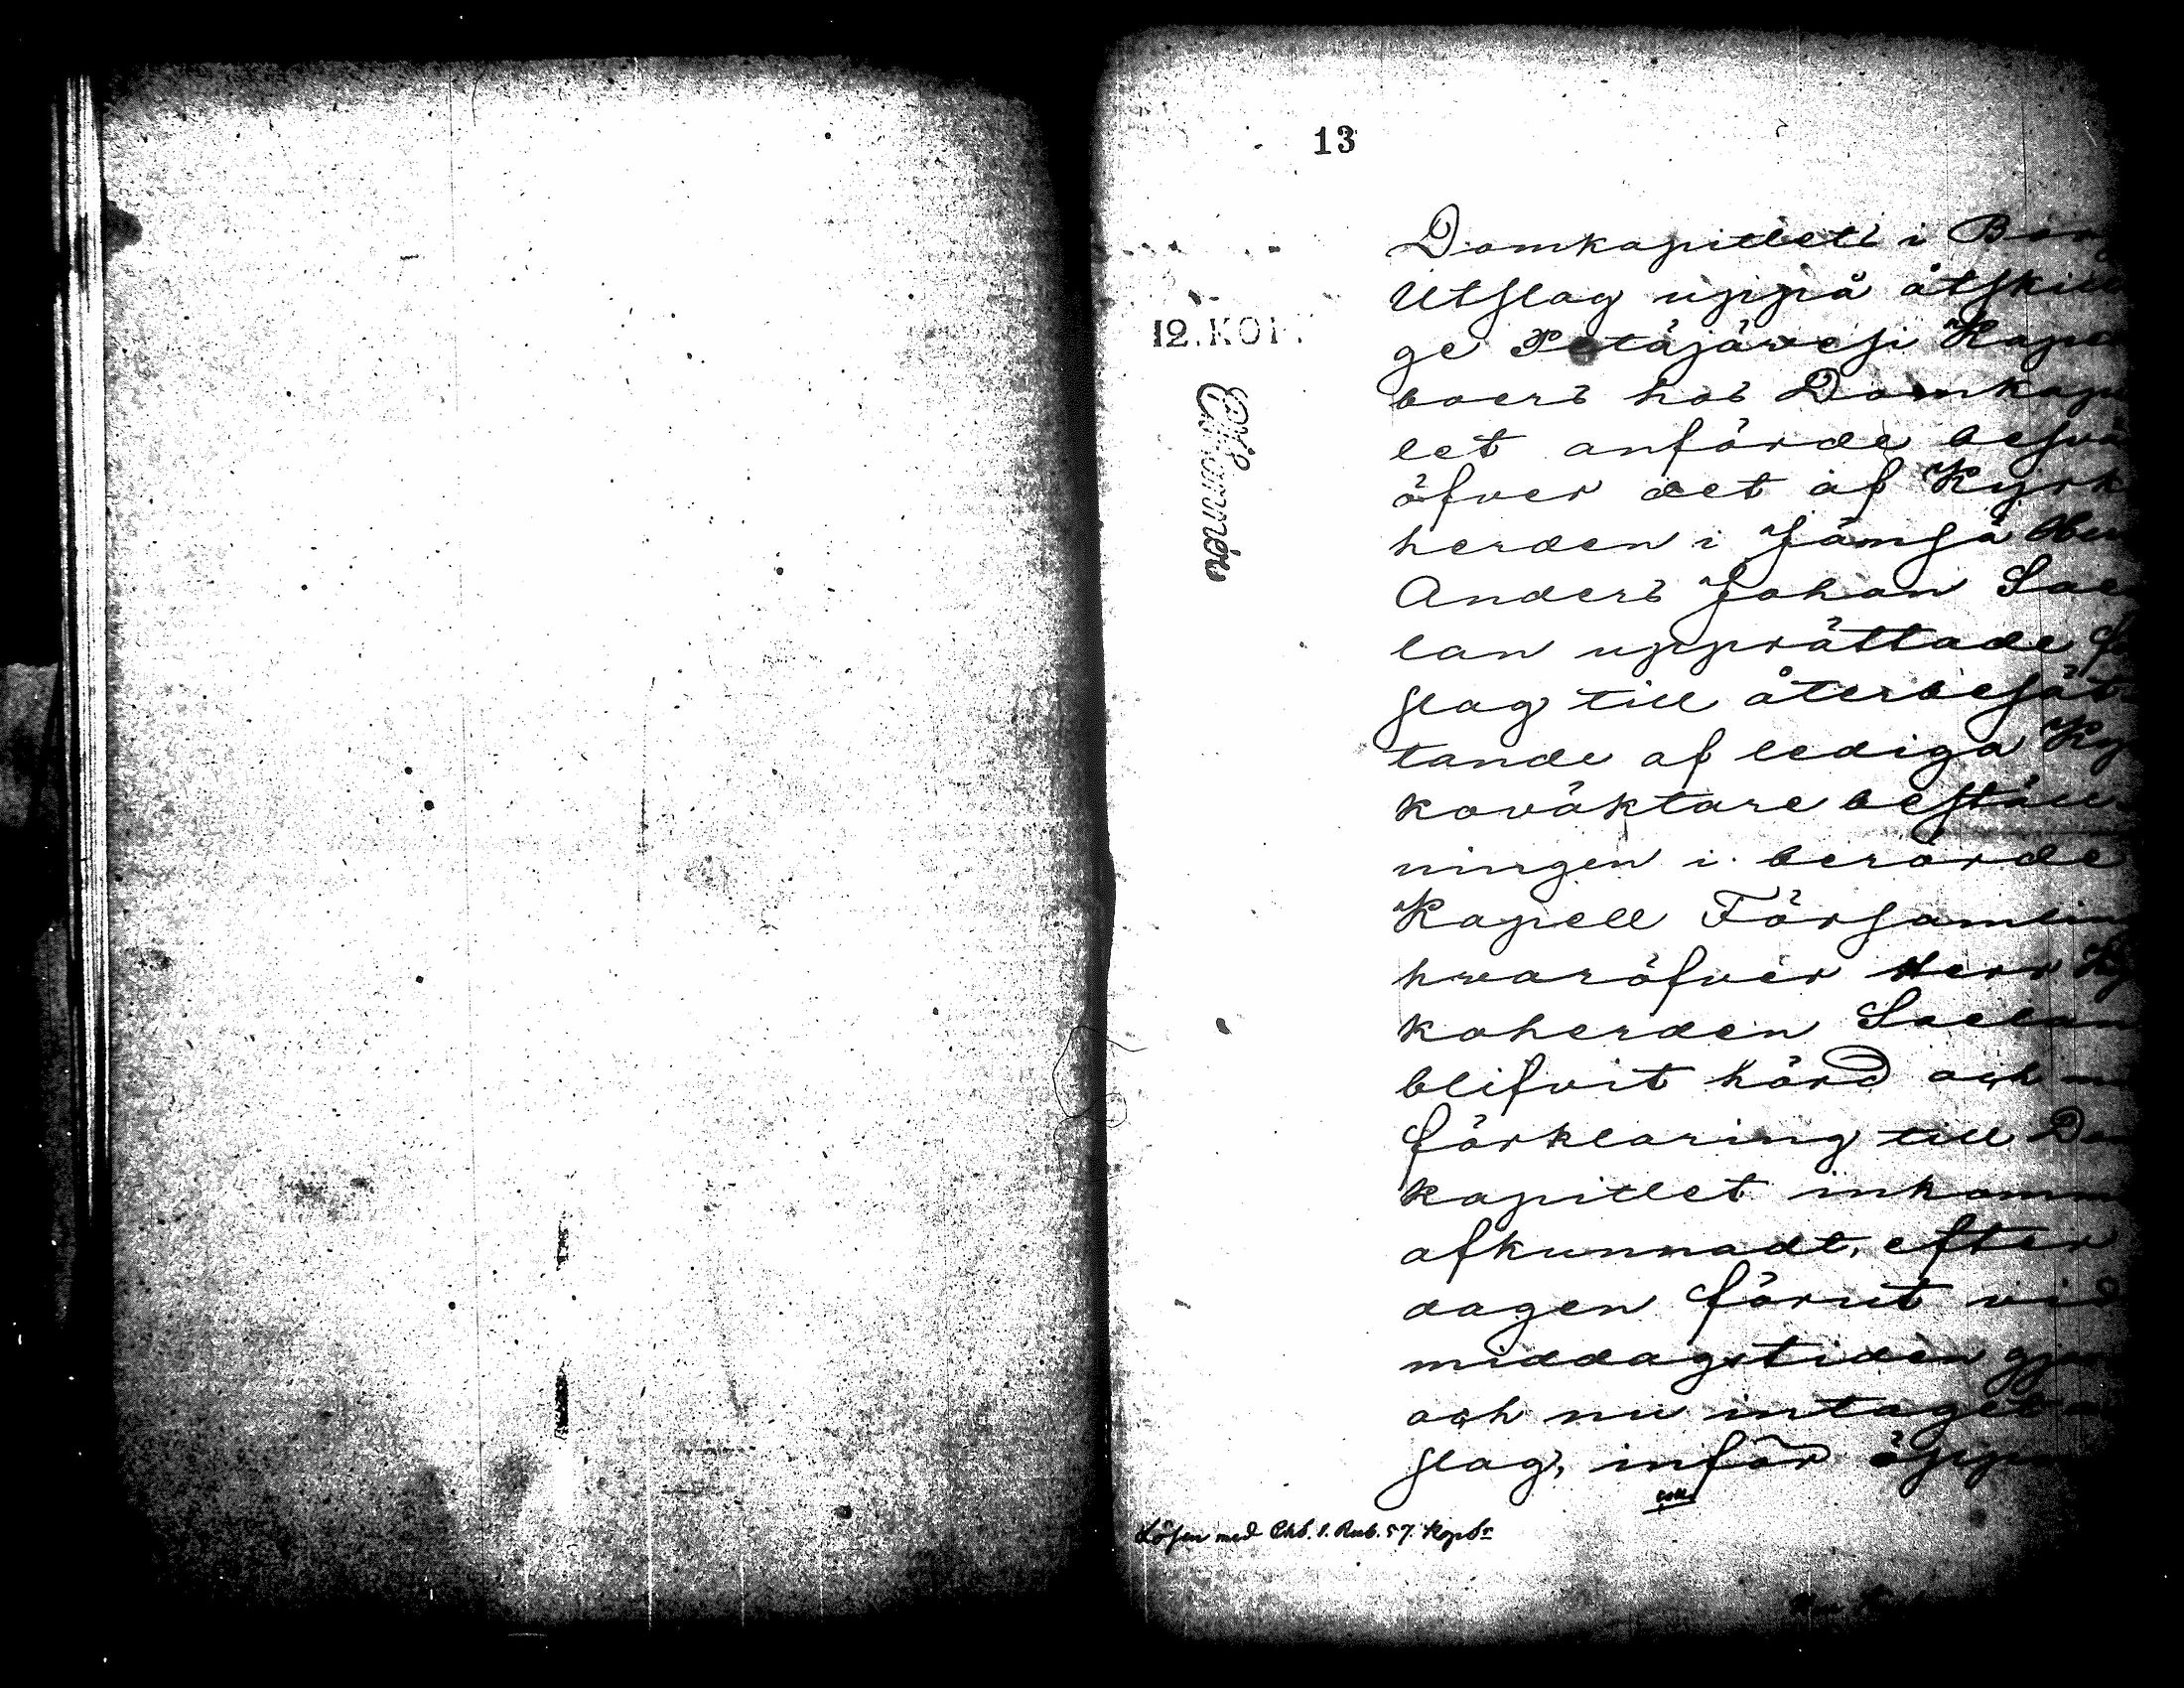 13
12. KOP.
Domkapitlets i Borg
Utslag uppå åtskilli
ge Petäjävesi Kapell
boers hos Domkapit
let anförde besvär
öfver det af Kyrko
herden i Jämsä Herr
Anders Johan Sae
lan upprättade för
slag till återbesät-
tande af lediga Kyr
koväktare beställ-
ningen i berörde
Kapell Församling
hvaröfver Herr Kyr
koherden Saelan
blifvit hörd och
förklaring till Dom
kapitlet inkommi
afkunnadt, efter
dagen förut vid
middagstiden gjor
och nu intaget an
slag, inför öppn
Lösen med Ch:s. 1. Rub. 57. Kop. Sr